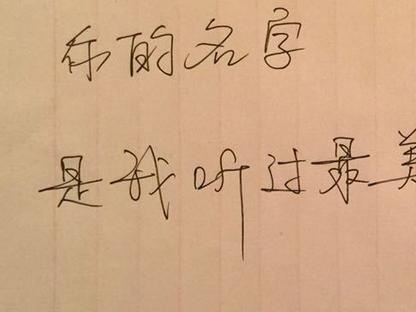 你的名字
是我听过最美